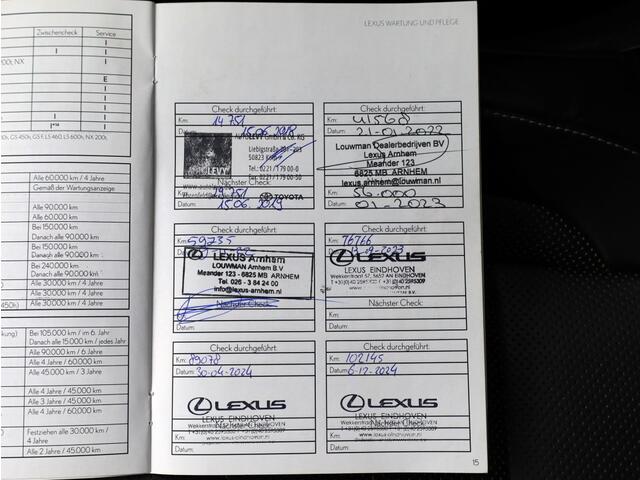 Zwischencheck Service
I I
00t, NX I
I
E
I
I
I I
I I
GS 450h, GS F, LS 460, LS 600h, NX 200t
Alle 60.000 km / 4 Jahre
Gemäß der Wartungsanzeige
Alle 90.000 km
Alle 60.000 km
Bei 150.000 km
Danach alle 90.000 km
Bei 150.000 km
Danach alle 90.000 km
Bei 240.000 km
Danach alle 90.000 km
Alle 30.000 km / 4 Jahre
450h) Alle 30.000 km / 4 Jahre
Bei 105.000 km / im 6. Jahr
Danach alle 15.000 km / jedes Jahr
Alle 90.000 km / 6 Jahre
Alle 60.000 km / 4 Jahre
Alle 45.000 km / 3 Jahre
Alle 4 Jahre / 45.000 km
Alle 3 Jahre / 45.000 km
Alle 4 Jahre / 60.000 km
Festziehen alle 30.000 km /
4 Jahre
Alle 2 Jahre / 45.000 km
LEXUS WARTUNG UND PFLEGE
Check durchgeführt:
Km: 14751
Datum: 15.06.2018
AUTOLEVY GmbH & Co. KG
Liebigstraße 201-203
50823 Köln
Tel.: 0221/1 79 00-0
Fax: 0221/1 79 00-50
Nächster Check:
29751
15.06.2019
TOYOTA
Check durchgeführt:
Km: 41568
Datum: 21-01-2022
Louwman Dealerbedrijven BV
Lexus Arnhem
Meander 123
6825 MB ARNHEM
lexus.arnhem@louwman.nl
Km: 56.000
Datum: 01-2023
Check durchgeführt:
Km: 59735
LEXUS Arnhem
LOUWMAN Arnhem B.V
Meander 123 - 6825 MB ARNHEM
Tel. 026 - 3 84 24 00
info@lexus-arnhem.nl
Nächster Check:
Datum:
Check durchgeführt:
Km: 76766
13-09-2023
LEXUS EINDHOVEN
Wekkerstraat 57, 5652 AN EINDHOVEN
T +31(0)40 2595300
www.lexus-eindhoven.nl
Nächster Check:
Km:
Datum:
Check durchgeführt:
Km: 89078
Datum: 30-04-2024
LEXUS
LEXUS EINDHOVEN
www.lexus-eindhoven.nl
Nächster Check:
Km:
Datum:
Check durchgeführt:
Km: 102145
Datum: 6-12-2024
LEXUS
LEXUS EINDHOVEN
www.lexus-eindhoven.nl
Nächster Check:
Km:
Datum:
15